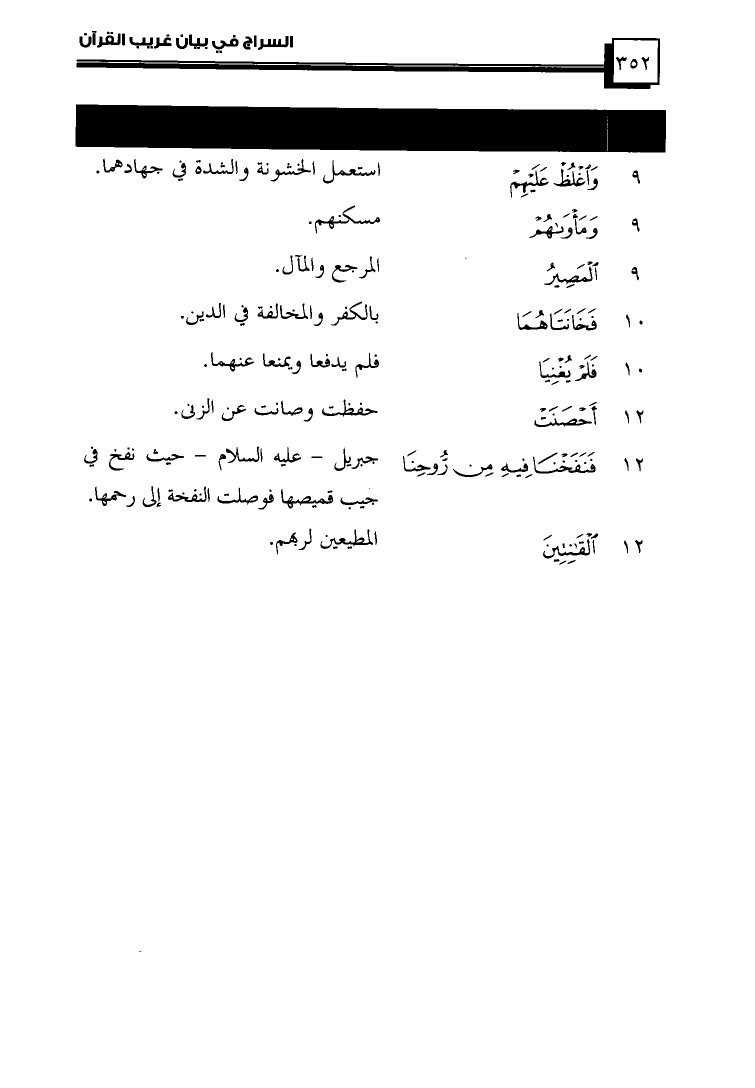 السراج في بيان غريب القرآن
٣٥٢
٩ وَٱغْلُظْ عَلَيْهِمْ استعمل الخشونة والشدة في جهادهما.
٩ وَمَأْوَىٰهُمْ مسكنهم.
٩ ٱلْمَصِيرُ المرجع والمآل.
١٠ فَخَانَتَاهُمَا بالكفر والمخالفة في الدين.
١٠ فَلَمْ يُغْنِيَا فلم يدفعا ويمنعا عنهما.
١٢ أَحْصَنَتْ حفظت وصانت عن الزنى.
١٢ فَنَفَخْنَا فِيهِ مِن رُّوحِنَا جبريل – عليه السلام – حيث نفخ في
جيب قميصها فوصلت النفخة إلى رحمها.
١٢ ٱلْقَٰنِتِينَ المطيعين لربهم.